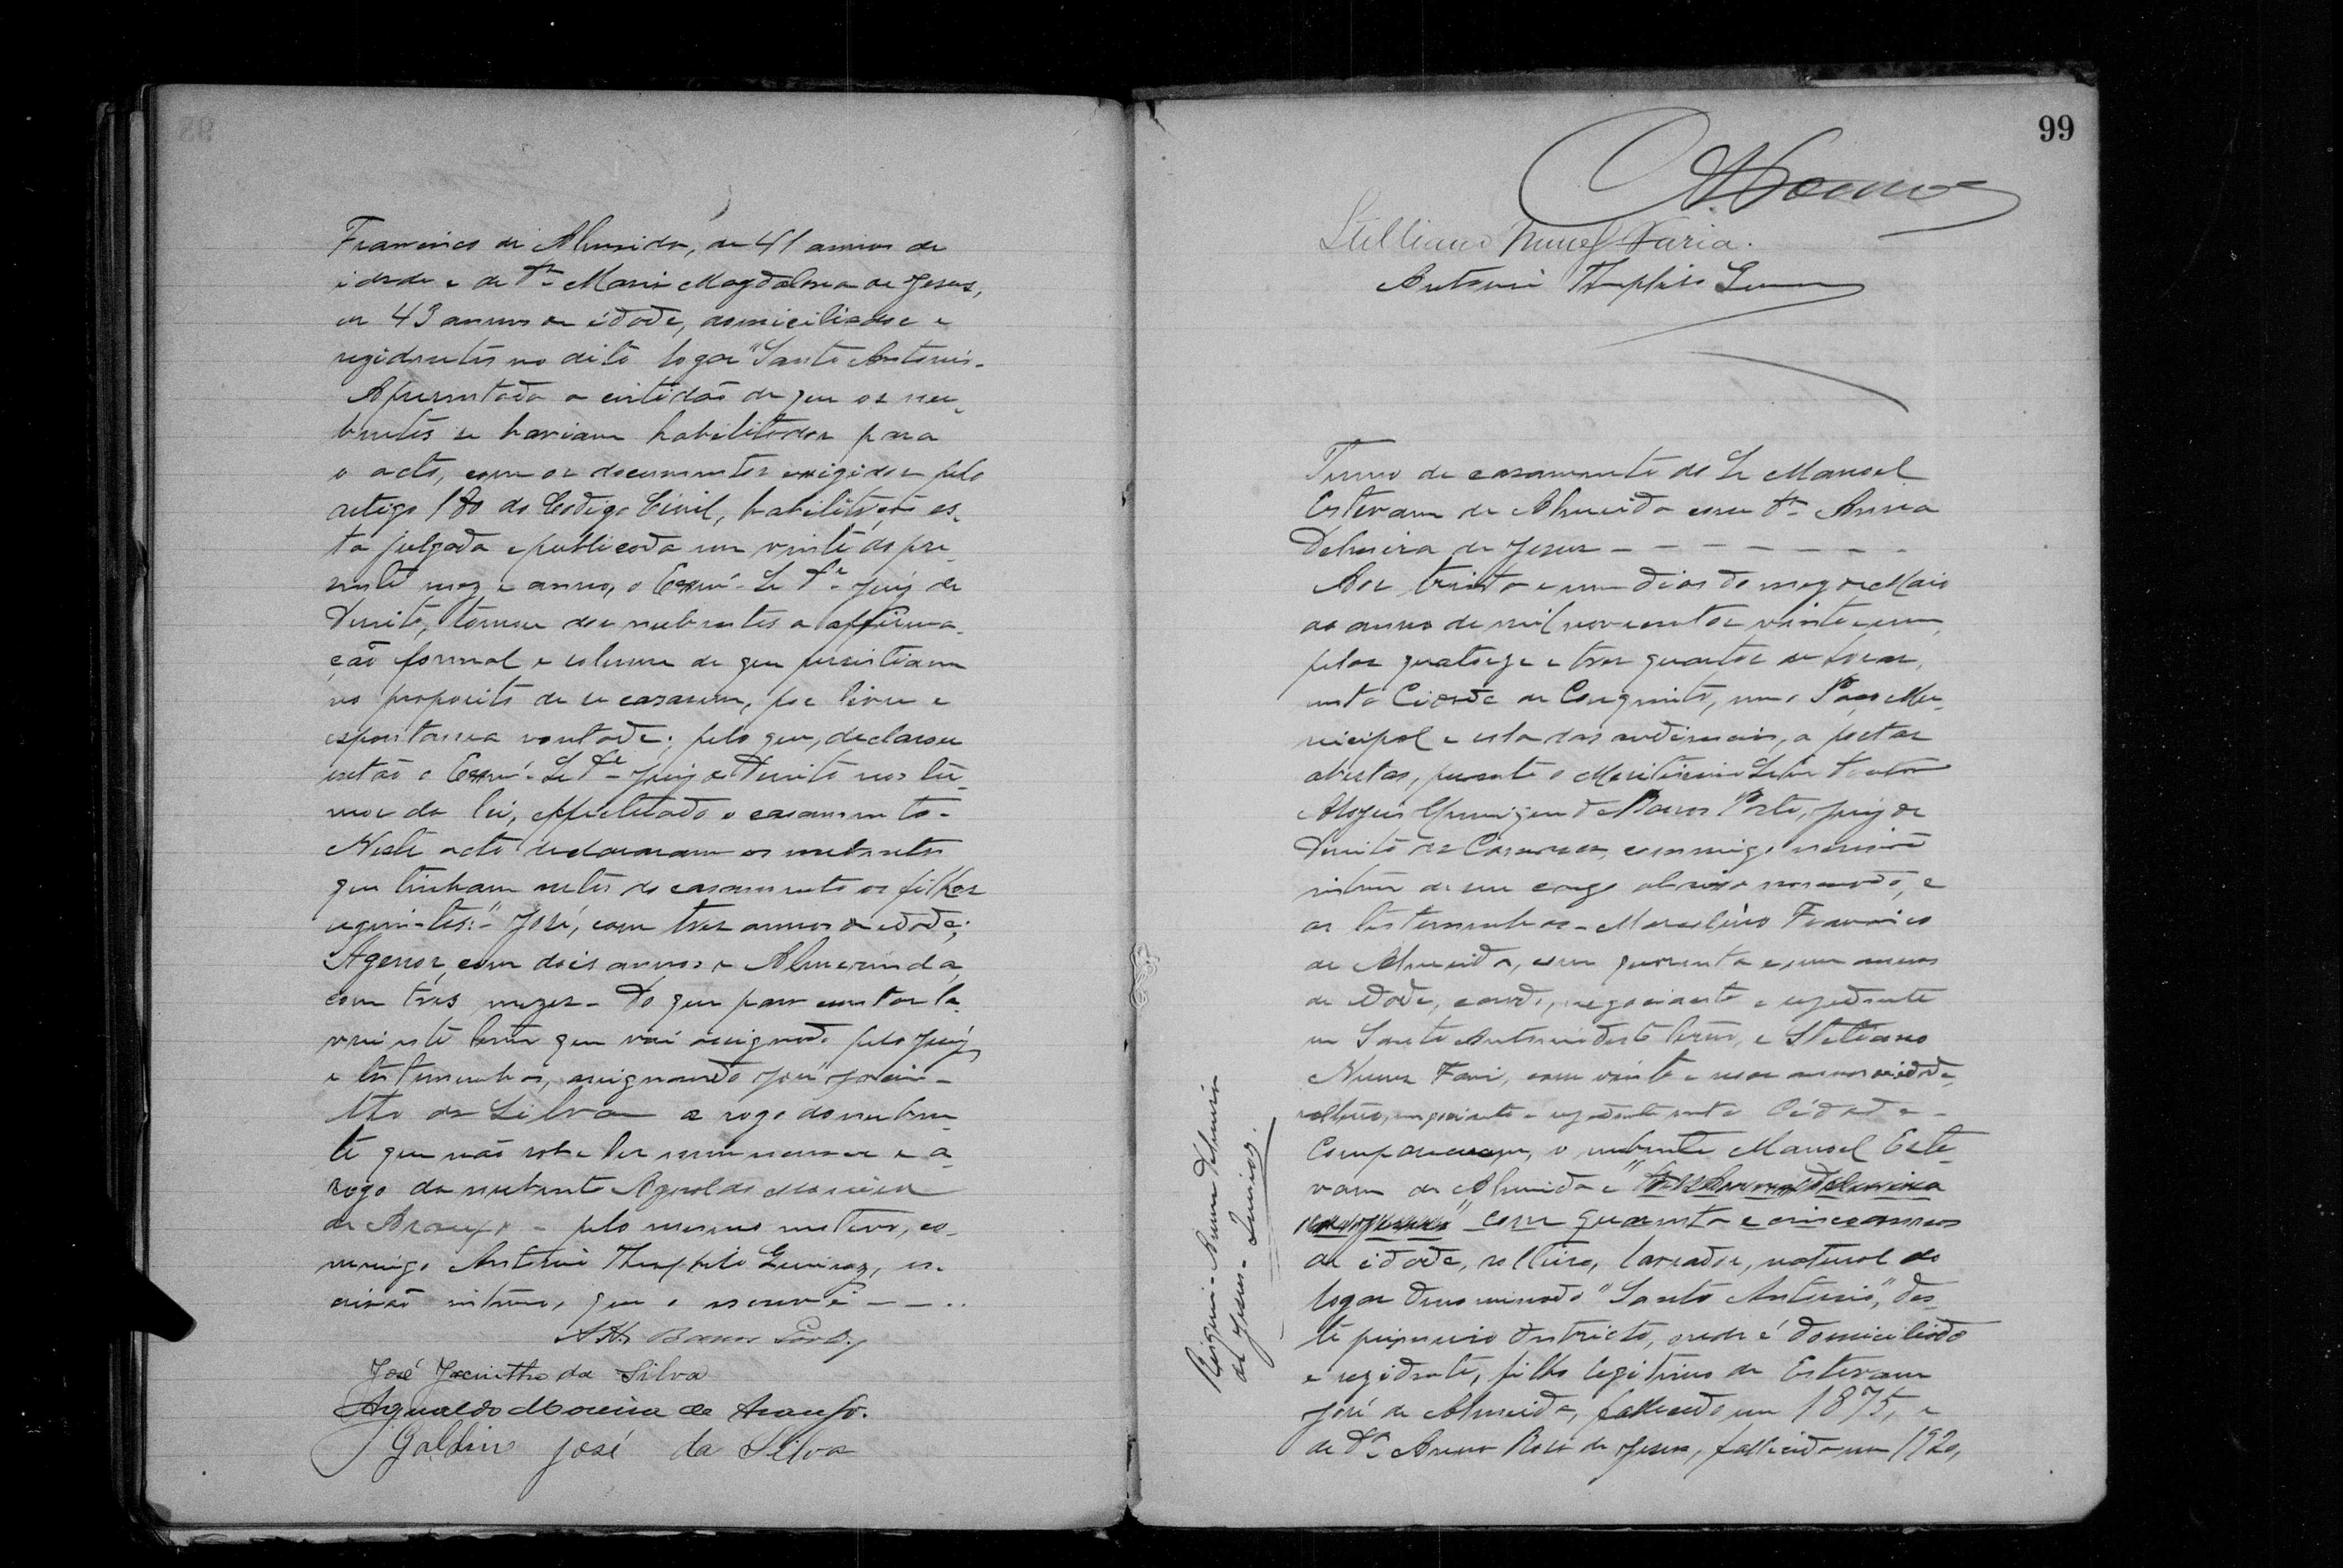 Francisco de Almeida, de 41 annos de
idade e de Dª Maria Magdalena de Jesus,
de 43 annos de idade, domiciliados e
rezidentes no dito logar "Santo Antonio.
Apresentada a certidão de que os nu-
bentes se haviam habilitados para
o acto, com os documentos exigidos pelo
artigo 180 do Codigo Civil, habilitação es-
ta julgada e publicada em vinte do pre-
sente mez e anno, o Exmº Sr Dr Juiz de
Direito, tomou dos nubentes a affirma-
ção formal e solemne de que persistiam
no proposito de se casarem, por livre e
espontanea vontade; pelo que, declarou
então o Exmº Sr Dr Juiz de Direito nos ter-
mos da lei, effectuado o casamento.
Neste acto declararam os nubentes
que tinham antes do casamento os filhos
seguintes: " José, com tres annos de edade;
Agenor, com dois annos e Almerinda,
com tres mezes. Do que para constar la-
vrei este termo que vai assignado pelo Juiz
e testemunhas, assignando José Jacin-
tho da Silva a rogo do nuben-
te que não sabe ler nem escrever e a
rogo da nubente Agnaldo Moreira
de Araujo - pelo mesmo motivo, co-
mmigo Antonio Theophilo Queiroz, es-
crivão interino, que o escrevi - - ..
A. H. Barros Porto
José Jacintho da Silva
Agnaldo Moreira de Araujo.
Galdino José da Silva
99
Stelliano Nunes Faria.
Antonio Theophilo
Termo de casamento do Sr Manoel
Estevam de Almeida com Dª Anna
Delmira de Jesus - - - - - - -
Aos trinta e um dias do mez de Maio
do anno de mil novecentos vinte e um,
pelas quatorze e tres quartos de horas,
nesta Cidade de Conquista, no Paço Mu-
nicipal e sala das audiencias, a portas
abertas, presente o Meritissimo Senhor Doutor
de Barros Porto, Juiz de
Direito da Comarca, commigo escrivão
interino de seu cargo abaixo nomeado, e
as testemunhas - Marcelino Francisco
de Almeida, com quarenta e um annos
de edade, casado, negociante e rezidente
em Santo Antonio deste termo, e Steliano
Nunes Faria, com vinte e annos de idade,
solteiro, negociante e rezidente nesta Cidade -
Compareceram, o nubente Manoel Este-
vam de Almeida e
com quarenta e cinco annos
de idade, solteiro, lavrador, natural do
logar denominado "Santo Antonio", des-
te primeiro districto, onde é domiciliado
e rezidente, filho legitimo de Estevam
José de Almeida, fallecido em 1875, e
de Dª Anna Rosa de Jesus, fallecida em 1920,
Anna Delmira
de Jesus -